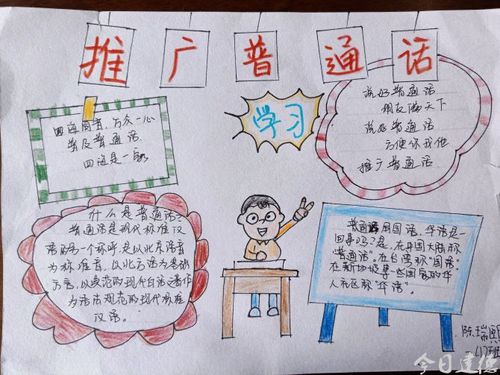 推广普通话
学习
四海同音,万众一心
普及普通话,
四海是一家
说好普通话
朋友遍天下
说好普通话
方便你我他
推广普通话
什么是普通话?
普通话是现代标准汉
语的另一个称呼,是以北京语音
为标准音,以北方话为基础
方言,以典范的现代白话文著作
为语法规范的现代标准
汉语。
普通话 国语,华语是一
回事吗?是,在中国大陆称
“普通话”,在台湾称“国语”,
在新加坡某一些国家的华
人社区称“华语”。
陈瑞
今日建德